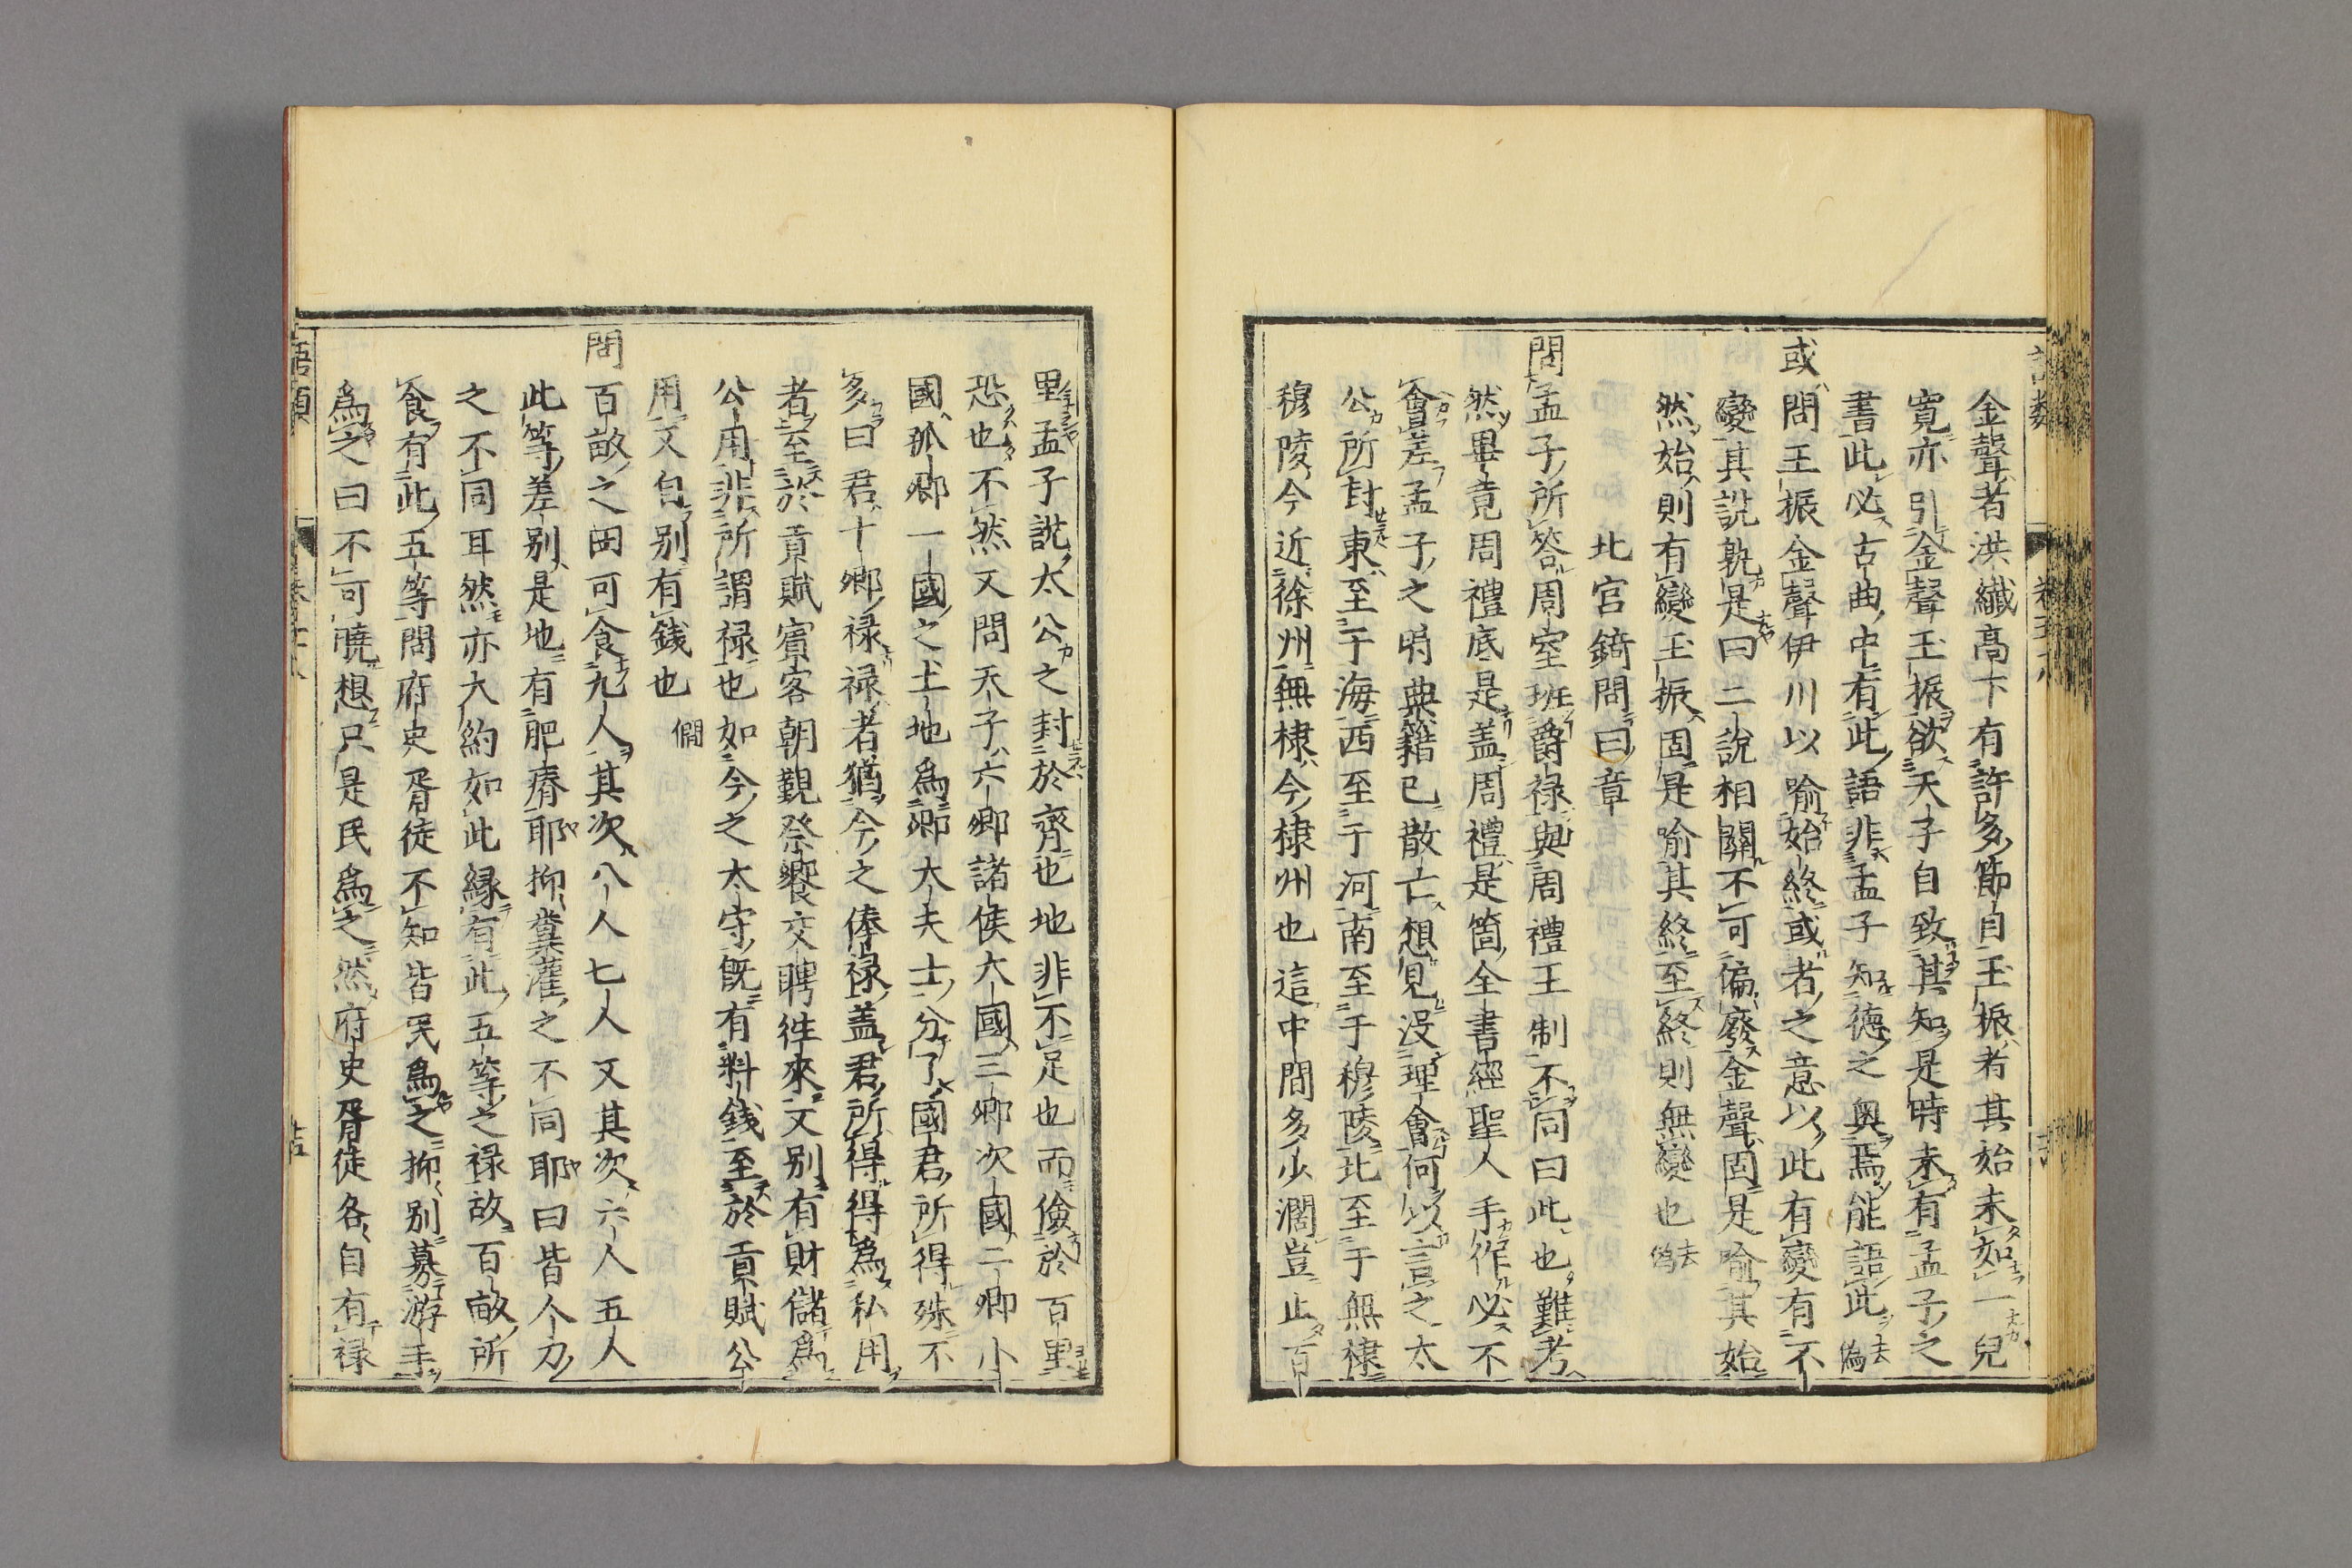 金聲者洪纖高下有許多節目玉振者其始末如一兒
寬亦引金聲玉振欲天子自致其知是時未有孟子之
書此必古曲中有此語非孟子知德之奧焉能語此 去偽
或問玉振金聲伊川以喻始終或者之意以此有變有不
變其說孰是曰二說相關不可偏廢金聲固是喻其始
然始則有變玉振固是喻其終至終則無變也 去偽
北宮錡問曰章
問孟子所答周室班爵祿與周禮王制不同曰此也難考
然畢竟周禮底是蓋周禮是箇全書經聖人手作必不
會差孟子之時典籍已散亡想見沒理會何以言之太
公所封東至于海西至于河南至于穆陵北至于無棣
穆陵今近徐州無棣今棣州也這中間多少濶豈止百
里孟子說太公之封於齊也地非不足也而儉於百里
恐也不然又問天子六卿諸侯大國三卿次國二卿小
國孤卿一國之土地為卿大夫士分了國君所得殊不
多曰君十卿祿祿者猶今之俸祿蓋君所得得為私用
者至於貢賦賓客朝覲祭饗交聘往來又別有財儲為
公用非所謂祿也如今之太守既有料錢至於貢賦公
用又自別有錢也 僩
問百畝之田可食九人其次八人七人又其次六人五人
此等差別是地有肥瘠耶抑糞灌之不同耶曰皆人力
之不同耳然亦大約如此緣有此五等之祿故百畝所
食有此五等問府史胥徒不知皆民為之抑別募游手
為之曰不可曉想只是民為之然府史胥徒各自有祿